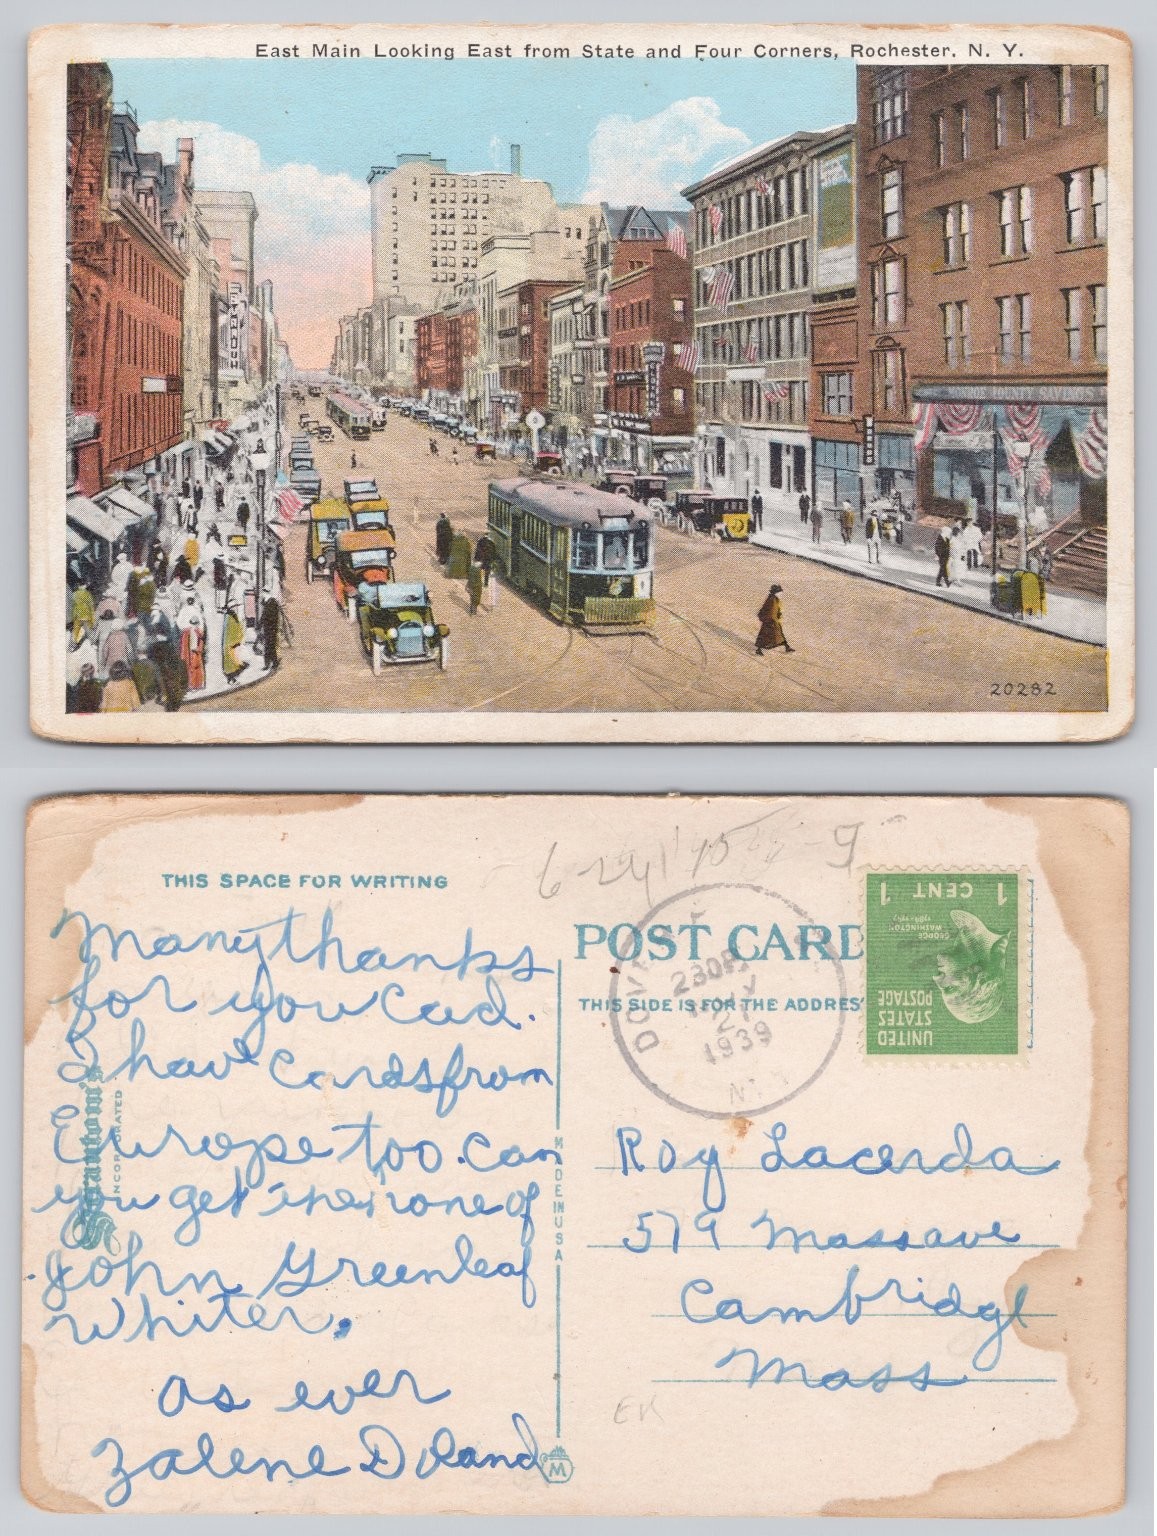 East Main Looking East from State and Four Corners, Rochester, N. Y.
20282
THIS SPACE FOR WRITING
Many thanks
for you Cad.
I have Cards from
Europe too. Can
you get the one of
John Greenleaf
Whiter.
as ever
Zalene Doland
INCORPORATED
MADE IN U S A
W
6-24
POST CARD
THIS SIDE IS FOR THE ADDRES
DOVE
230P
21
1939
N.
1 CENT 1
GEORGE
WASHINGTON
UNITED
STATES
POSTAGE
Roy Lacerda
579 Mass ave
Cambridge
Mass
EK